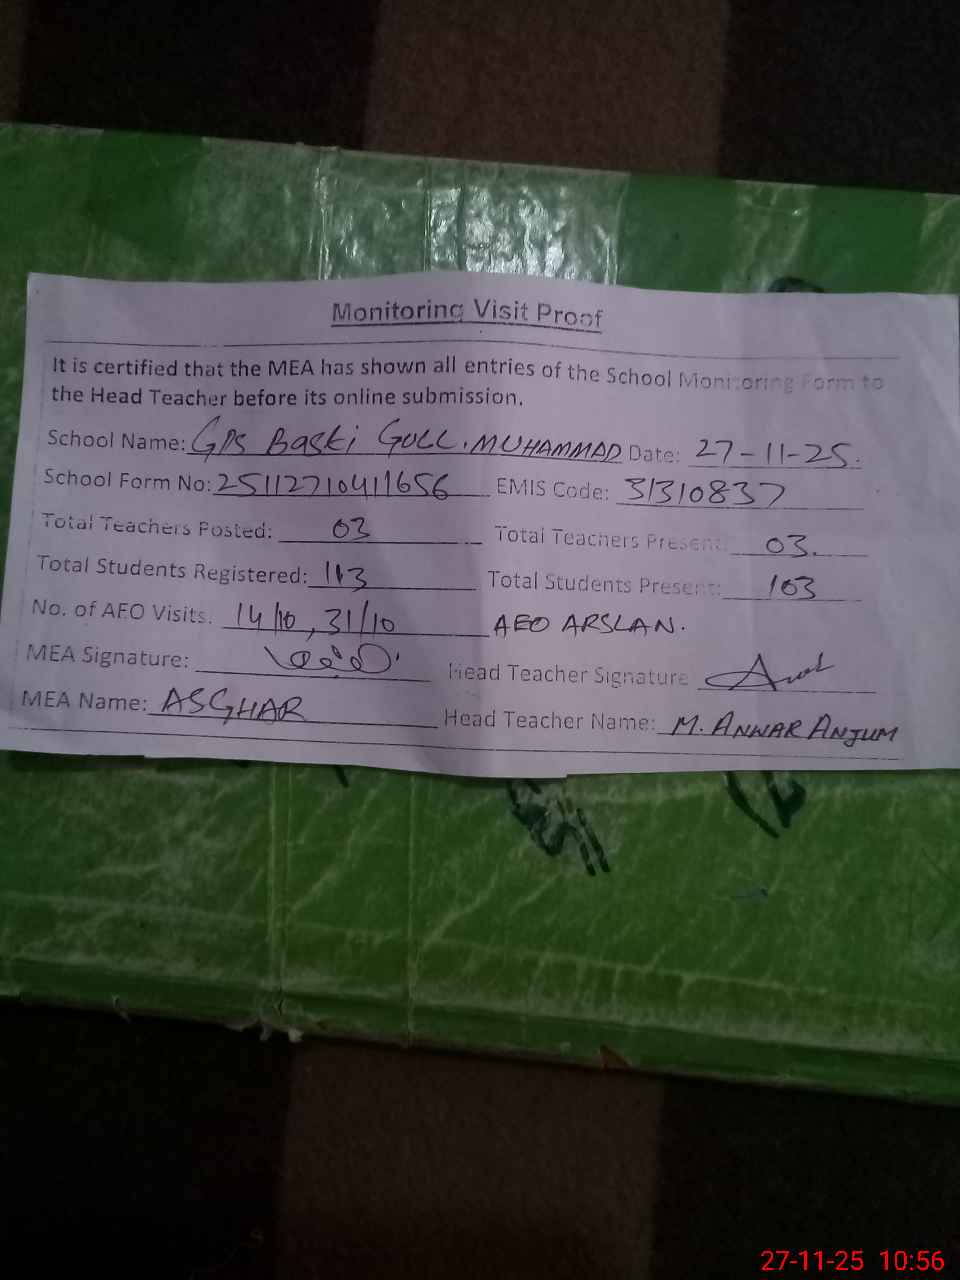 Monitoring Visit Proof
It is certified that the MEA has shown all entries of the School Monitoring Form to
the Head Teacher before its online submission.
School Name: GPS Basti Gull. MUHAMMAD Date: 27-11-25.
School Form No: 25112710411656 EMIS Code: 31310837
Total Teachers Posted: 03 Total Teachers Present: 03.
Total Students Registered: 113 Total Students Present: 103
No. of AEO Visits. 14/10, 31/10 AEO ARSLAN.
MEA Signature: Head Teacher Signature
MEA Name: ASGHAR Head Teacher Name: M. ANWAR ANJUM
27-11-25 10:56